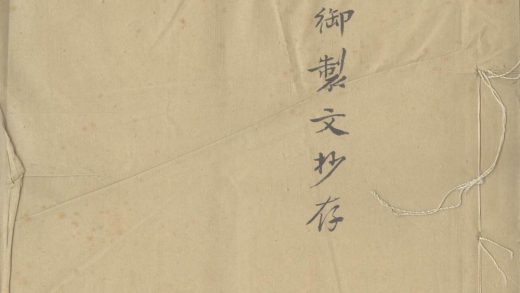 御製文抄存